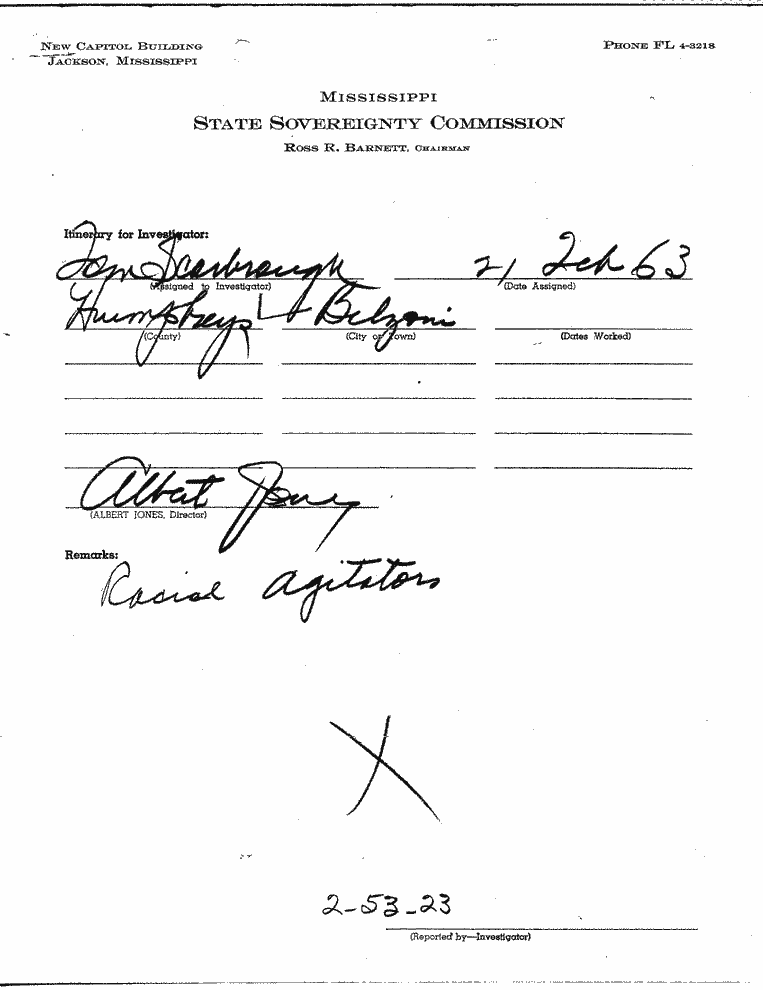 NEW CAPITOL BUILDING
JACKSON, MISSISSIPPI
PHONE FL 4-3218
MISSISSIPPI
STATE SOVEREIGNTY COMMISSION
ROSS R. BARNETT, CHAIRMAN
Itinerary for Investigator:
Tom Scarbrough 21 Feb 63
(Assigned to Investigator) (Date Assigned)
Humphreys Belzoni
(County) (City or Town) (Dates Worked)
Albert Jones
(ALBERT JONES, Director)
Remarks:
Racial agitators
X
2-53-23
(Reported by—Investigator)